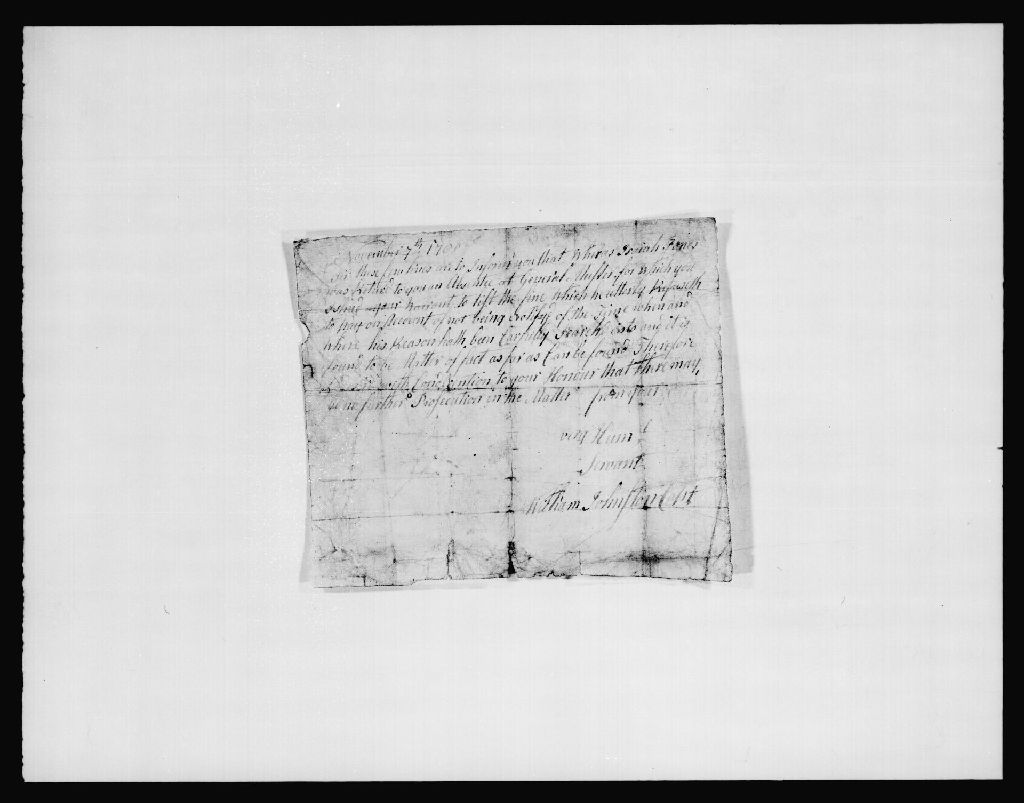 November 7th 170
Sir these few lines are to Inform you that Whereas Josiah Jones
was Return'd to you an Absentee at General Muster for which you
Issued your Warrant to lift the fine Which he utterly Refuseth
to pay on Account of not being Notifyd of the Time when and
where his Reason hath been Carfully Search'd into and it is
found to be Matter of fact as far as Can be found Therefore
with to your Honour that there may
be no further Prosecution in the Matter from your
very Huml
Servant
William Johnston Cpt